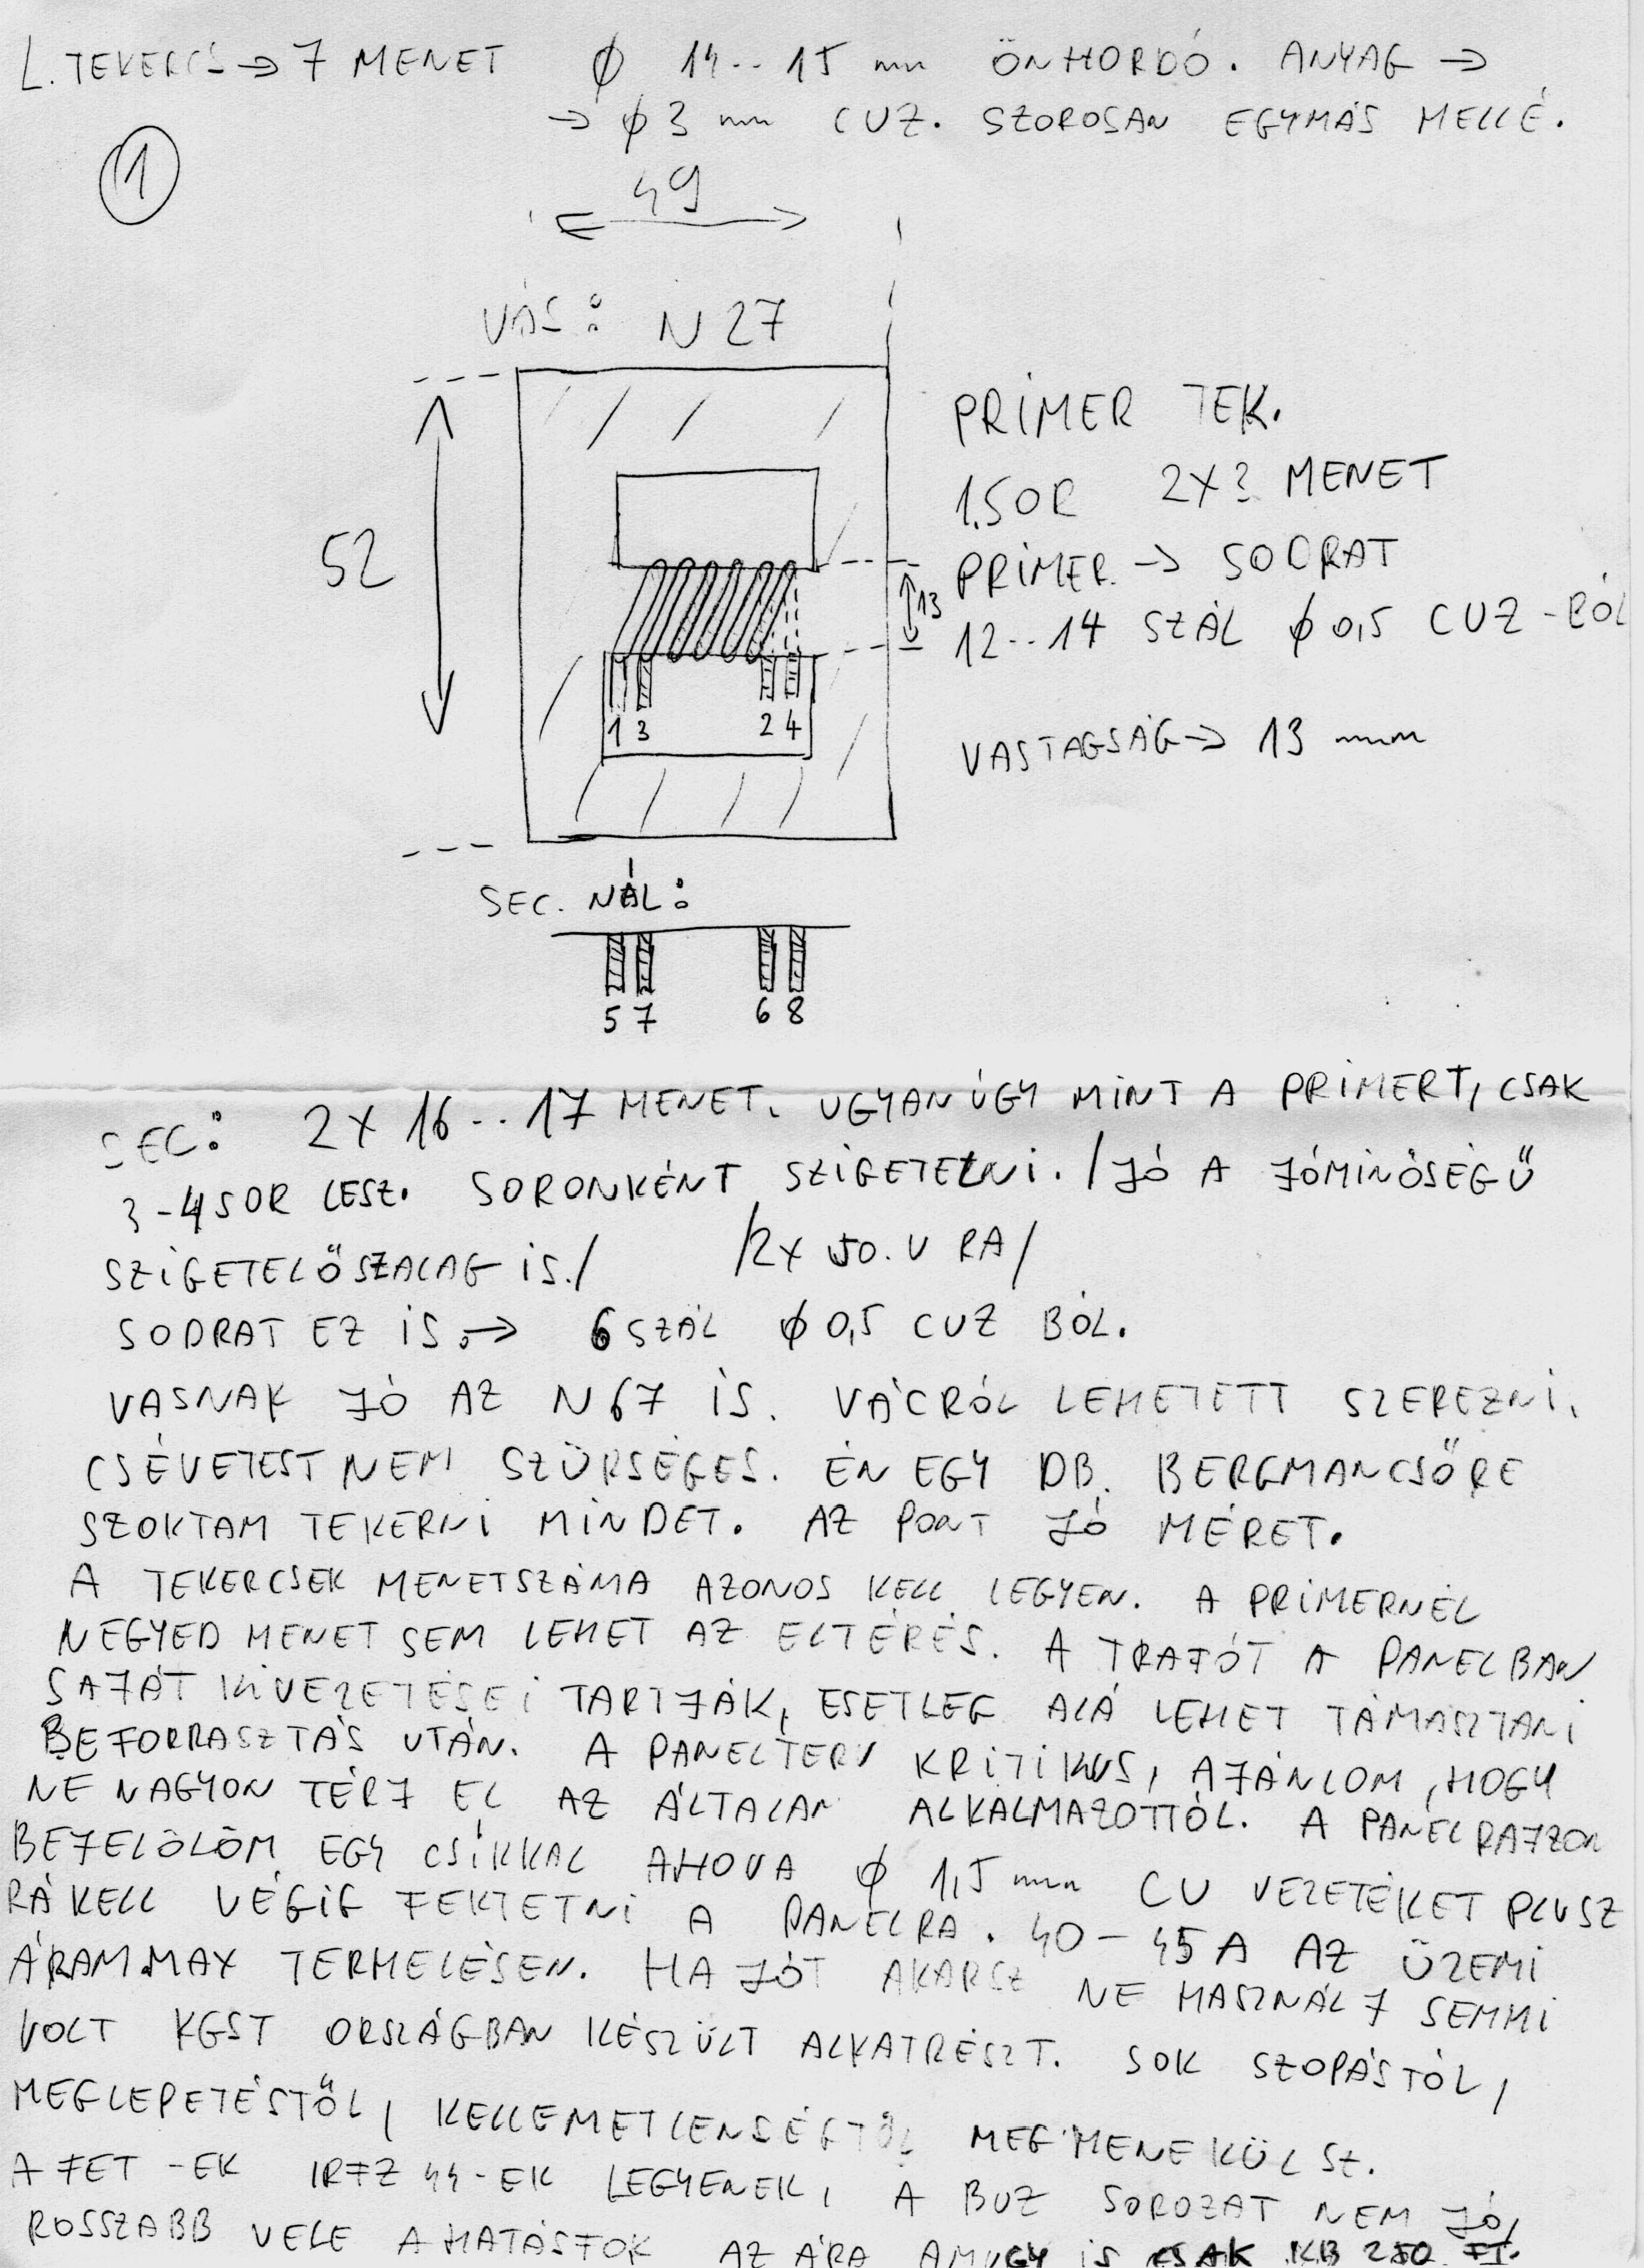 L. TEKERCS → 7 MENET Ø 14..15 mm ÖNHORDÓ. ANYAG →
→ Ø 3 mm CUZ. SZOROSAN EGYMÁS MELLÉ.
1
49
VAS: N27
PRIMER TEK.
1.SOR 2X? MENET
PRIMER → SODRAT
12..14 SZÁL Ø 0,5 CUZ-BÓL
13
52
1 3 2 4
VASTAGSÁG → 13 mm
SEC. NÁL:
5 7 6 8
SEC: 2X 16..17 MENET. UGYANÚGY MINT A PRIMERT, CSAK
3-4 SOR LESZ. SORONKÉNT SZIGETELNI. /JÓ A JÓMINŐSÉGŰ
SZIGETELŐSZALAG IS./ /2X 50.V RA/
SODRAT EZ IS. → 6 SZÁL Ø 0,5 CUZ BÓL.
VASNAK JÓ AZ N67 IS. VÁCRÓL LEHETETT SZEREZNI.
CSÉVETEST NEM SZÜKSÉGES. ÉN EGY DB. BERGMANCSŐRE
SZOKTAM TEKERNI MINDET. AZ PONT JÓ MÉRET.
A TEKERCSEK MENETSZÁMA AZONOS KELL LEGYEN. A PRIMERNÉL
NEGYED MENET SEM LEHET AZ ELTÉRÉS. A TRAFÓT A PANELBAN
SAJÁT KIVEZETÉSEI TARTJÁK, ESETLEG ALÁ LEHET TÁMASZTANI
BEFORRASZTÁS UTÁN. A PANELTERV KRITIKUS, AJÁNLOM, HOGY
NE NAGYON TÉRJ EL AZ ÁLTALAM ALKALMAZOTTÓL. A PANELRAJZON
BEJELÖLÖM EGY CSÍKKAL AHOVA Ø 1,5 mm CU VEZETÉKET PLUSZ
RÁ KELL VÉGIG FEKTETNI A PANELRA. 40 - 45 A AZ ÜZEMI
ÁRAM MAX TERHELÉSEN. HA JÓT AKARSZ NE HASZNÁLJ SEMMI
VOLT KGST ORSZÁGBAN KÉSZÜLT ALKATRÉSZT. SOK SZOPÁSTÓL,
MEGLEPETÉSTŐL, KELLEMETLENSÉGTŐL MEGMENEKÜLSZ.
A FET-EK IRFZ 44-EK LEGYENEK, A BUZ SOROZAT NEM JÓ,
ROSSZABB VELE A HATÁSFOK AZ ÁRA AMÚGY IS CSAK KB 250 FT.